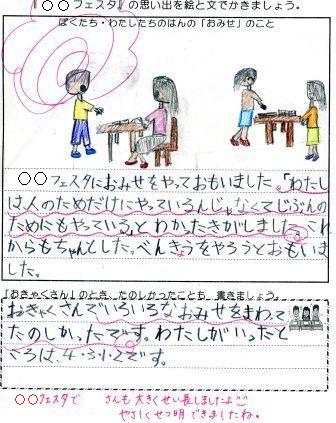 『○○フェスタ』の思い出を絵と文でかきましょう。
ぼくたち・わたしたちのはんの「おみせ」のこと
○○フェスタにおみせをやっておもいました。「わたし
は人のためだけにやっているんじゃなくてじぶんの
ためにもやっている」とわかったきがしました。これ
からもちゃんとした。べんきょうをやろうとおもいま
した。
「おきゃくさん」のとき、たのしかったことも、書きましょう。
おきゃくさんでいろいろなおみせをまわって
たのしかったです。わたしがいったと
ころは、4・3・1・2です。
○○フェスタで さんも大きくせい長しましたよ
やさしくせつ明できましたね。